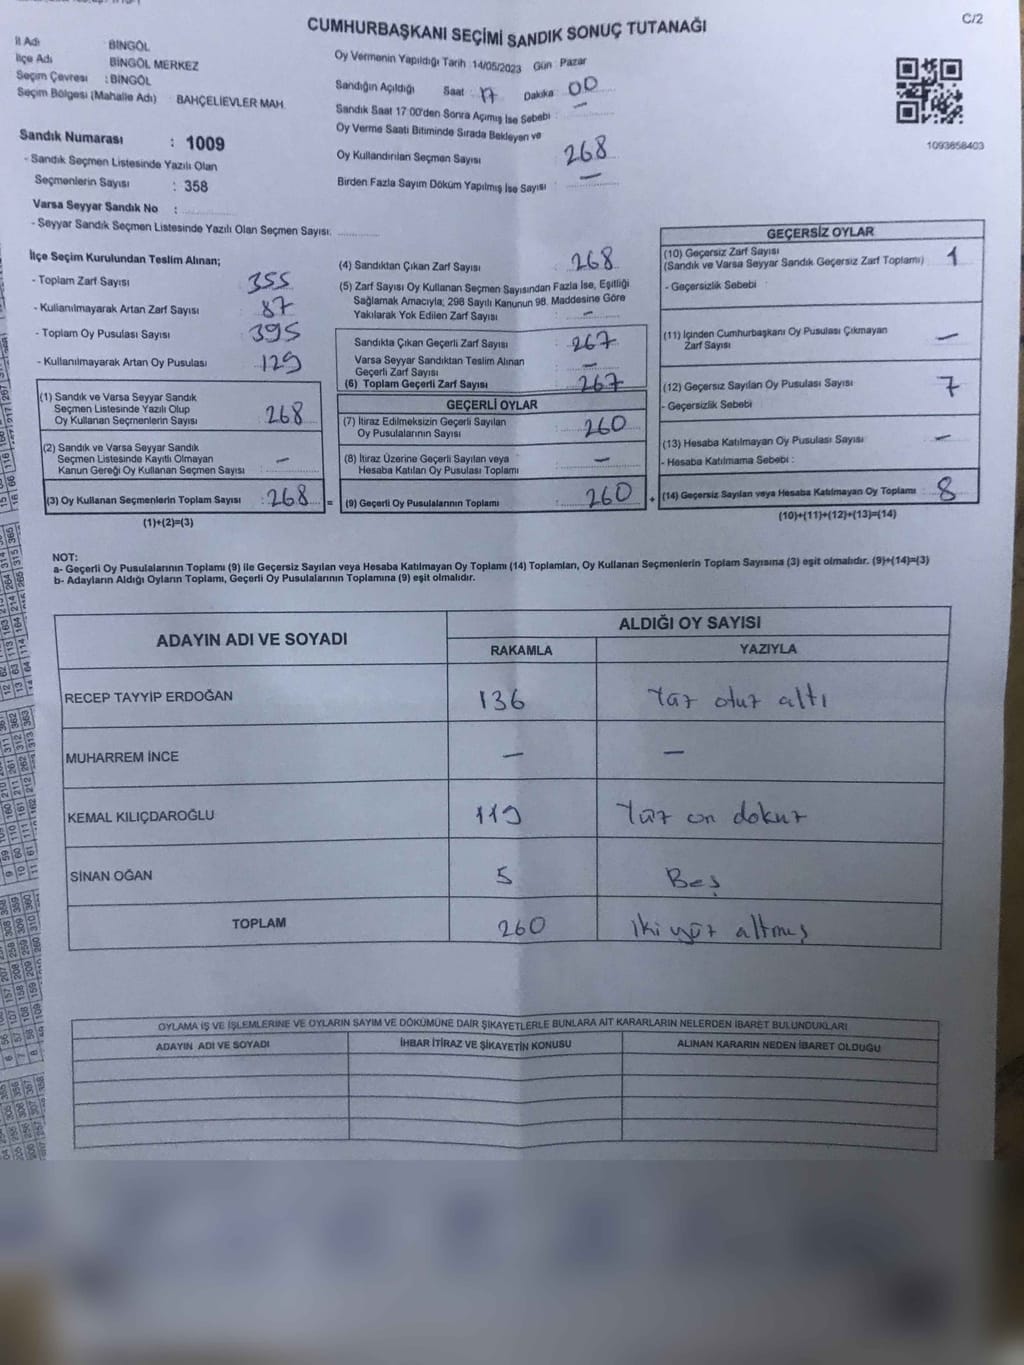 C/2
CUMHURBAŞKANI SEÇİMİ SANDIK SONUÇ TUTANAĞI
İl Adı : BİNGÖL
İlçe Adı BİNGÖL MERKEZ
Seçim Çevresi : BİNGÖL
Seçim Bölgesi (Mahalle Adı) : BAHÇELİEVLER MAH.
Oy Vermenin Yapıldığı Tarih : 14/05/2023 Gün : Pazar
Sandığın Açıldığı Saat : 17 Dakika : 00
Sandık Saat 17:00'den Sonra Açılmış İse Sebebi : —
Oy Verme Saati Bitiminde Sırada Bekleyen ve
Oy Kullandırılan Seçmen Sayısı 268
Birden Fazla Sayım Döküm Yapılmış İse Sayısı —
1093858403
Sandık Numarası : 1009
- Sandık Seçmen Listesinde Yazılı Olan
Seçmenlerin Sayısı : 358
Varsa Seyyar Sandık No :
- Seyyar Sandık Seçmen Listesinde Yazılı Olan Seçmen Sayısı:
İlçe Seçim Kurulundan Teslim Alınan;
- Toplam Zarf Sayısı 355
- Kullanılmayarak Artan Zarf Sayısı 87
- Toplam Oy Pusulası Sayısı 395
- Kullanılmayarak Artan Oy Pusulası 129
(1) Sandık ve Varsa Seyyar Sandık
Seçmen Listesinde Yazılı Olup
Oy Kullanan Seçmenlerin Sayısı 268
(2) Sandık ve Varsa Seyyar Sandık
Seçmen Listesinde Kayıtlı Olmayan
Kanun Gereği Oy Kullanan Seçmen Sayısı —
(3) Oy Kullanan Seçmenlerin Toplam Sayısı : 268
(1)+(2)=(3)
(4) Sandıktan Çıkan Zarf Sayısı 268
(5) Zarf Sayısı Oy Kullanan Seçmen Sayısından Fazla İse, Eşitliği
Sağlamak Amacıyla; 298 Sayılı Kanunun 98. Maddesine Göre
Yakılarak Yok Edilen Zarf Sayısı —
Sandıkta Çıkan Geçerli Zarf Sayısı 267
Varsa Seyyar Sandıktan Teslim Alınan
Geçerli Zarf Sayısı —
(6) Toplam Geçerli Zarf Sayısı 267
GEÇERLİ OYLAR
(7) İtiraz Edilmeksizin Geçerli Sayılan
Oy Pusulalarının Sayısı 260
(8) İtiraz Üzerine Geçerli Sayılan veya
Hesaba Katılan Oy Pusulası Toplamı —
= (9) Geçerli Oy Pusulalarının Toplamı 260
GEÇERSİZ OYLAR
(10) Geçersiz Zarf Sayısı
(Sandık ve Varsa Seyyar Sandık Geçersiz Zarf Toplamı) 1
- Geçersizlik Sebebi :
(11) İçinden Cumhurbaşkanı Oy Pusulası Çıkmayan
Zarf Sayısı —
(12) Geçersiz Sayılan Oy Pusulası Sayısı 7
- Geçersizlik Sebebi
(13) Hesaba Katılmayan Oy Pusulası Sayısı —
- Hesaba Katılmama Sebebi :
+ (14) Geçersiz Sayılan veya Hesaba Katılmayan Oy Toplamı : 8
(10)+(11)+(12)+(13)=(14)
NOT:
a- Geçerli Oy Pusulalarının Toplamı (9) ile Geçersiz Sayılan veya Hesaba Katılmayan Oy Toplamı (14) Toplamları, Oy Kullanan Seçmenlerin Toplam Sayısına (3) eşit olmalıdır. (9)+(14)=(3)
b- Adayların Aldığı Oyların Toplamı, Geçerli Oy Pusulalarının Toplamına (9) eşit olmalıdır.
ADAYIN ADI VE SOYADI ALDIĞI OY SAYISI
RAKAMLA YAZIYLA
RECEP TAYYİP ERDOĞAN 136 Yüz otuz altı
MUHARREM İNCE — —
KEMAL KILIÇDAROĞLU 119 Yüz on dokuz
SİNAN OĞAN 5 Beş
TOPLAM 260 İki yüz altmış
OYLAMA İŞ VE İŞLEMLERİNE VE OYLARIN SAYIM VE DÖKÜMÜNE DAİR ŞİKAYETLERLE BUNLARA AİT KARARLARIN NELERDEN İBARET BULUNDUKLARI
ADAYIN ADI VE SOYADI İHBAR İTİRAZ VE ŞİKAYETİN KONUSU ALINAN KARARIN NEDEN İBARET OLDUĞU